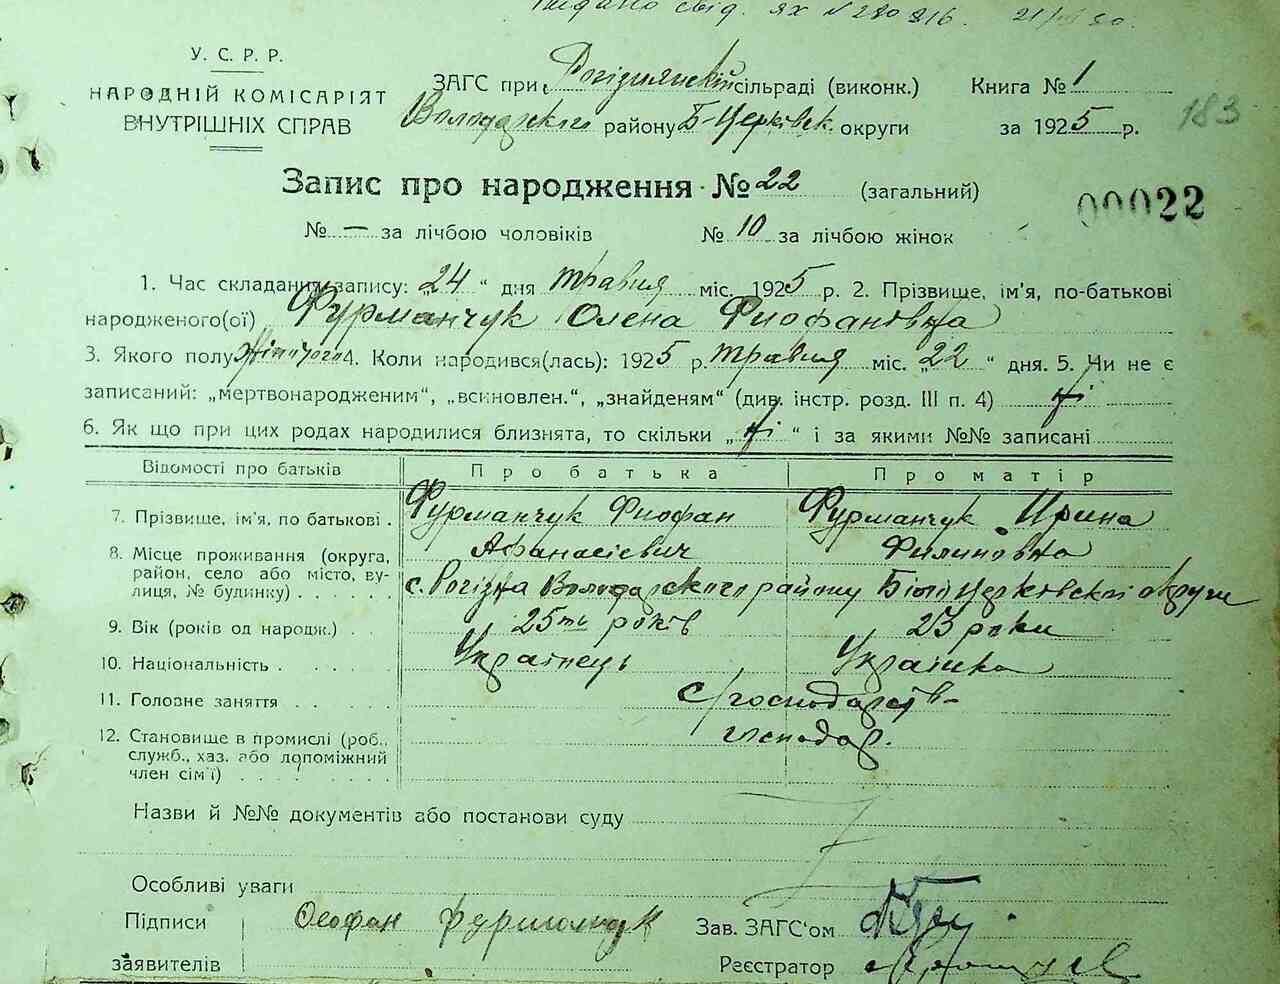 Видано свід. ЯХ № 280816. 21/ 80.
У. С. Р. Р.
НАРОДНІЙ КОМІСАРІЯТ
ВНУТРІШНІХ СПРАВ
ЗАГС при Рогізнянській сільраді (виконк.) Книга № 1
Володарского району Б-Церківск. округи за 1925 р.
183
Запис про народження № 22 (загальний)
00022
№ — за лічбою чоловіків № 10 за лічбою жінок
1. Час складання запису: „24“ дня травня міс. 1925 р. 2. Прізвище, ім'я, по-батькові
народженого(ої) Фурманчук Олена Фиофановна
3. Якого полу жіночого 4. Коли народився(лась): 1925 р. травня міс. „22“ дня. 5. Чи не є
записаний: „мертвонародженим“, „всиновлен.“, „знайденям“ (див. інстр. розд. III п. 4) ні
6. Як що при цих родах народилися близнята, то скільки „ні“ і за якими №№ записані
Відомості про батьків Про батька Про матір
7. Прізвище, ім'я, по батькові . Фурманчук Фиофан Фурманчук Ирина
Афанасієвич Филиповна
8. Місце проживання (округа,
район, село або місто, ву-
лиця, № будинку) с. Рогізна Володарского району Білоцерковскої округи
9. Вік (років од народж.) . . 25ть років 23 роки
10. Національність . Українець Українка
11. Головне заняття с/господарств-
12. Становище в промислі (роб., господар.
служб., хаз. або допоміжний
член сім'ї)
Назви й №№ документів або постанови суду
Особливі уваги
Підписи Феофан Фурманчук Зав. ЗАГС'ом
заявителів Реєстратор